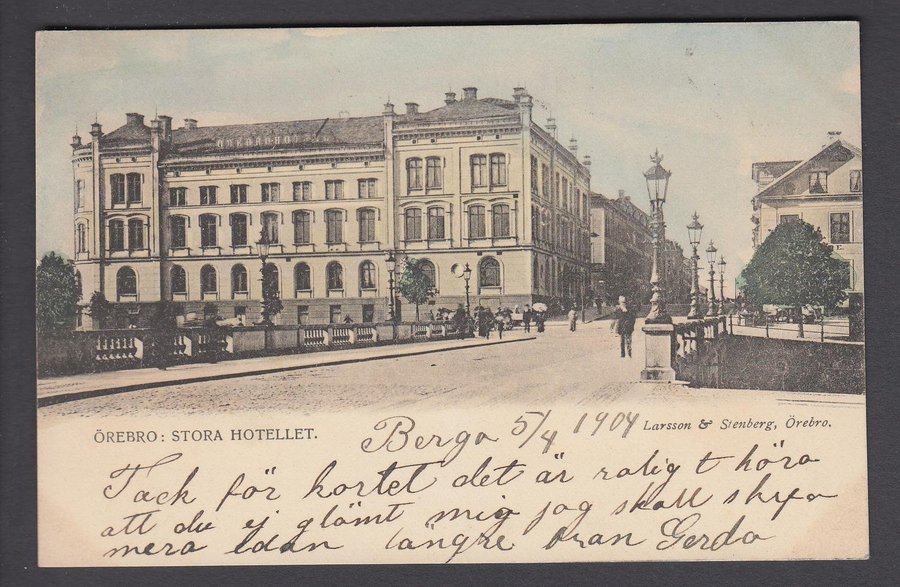 ÖREBRO: STORA HOTELLET.
Berga 5/4 1904
Larsson & Stenberg, Örebro.
Tack för kortet det är roligt höra
att du ej glömt mig jag skall skrifva
mera edan längre Fran Gerda